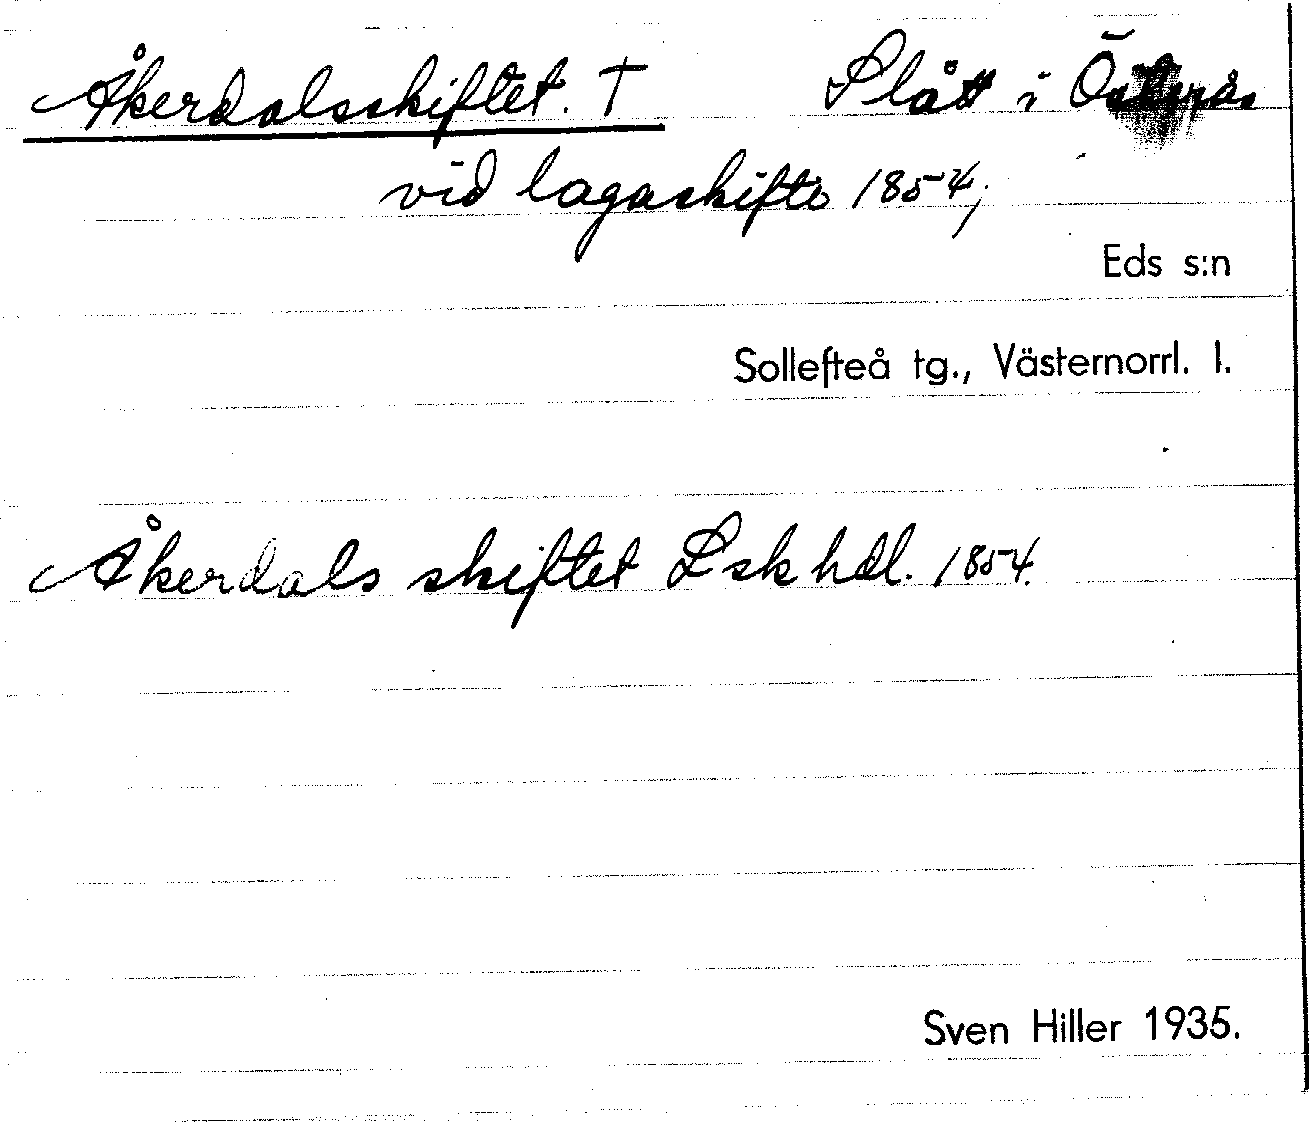 Åkerdalsskiftet. † Slått i Österås
vid lagaskifte 1854;
Eds s:n
Sollefteå tg., Västernorrl. l.
Åkerdals skiftet Lskhdl. 1854.
Sven Hiller 1935.